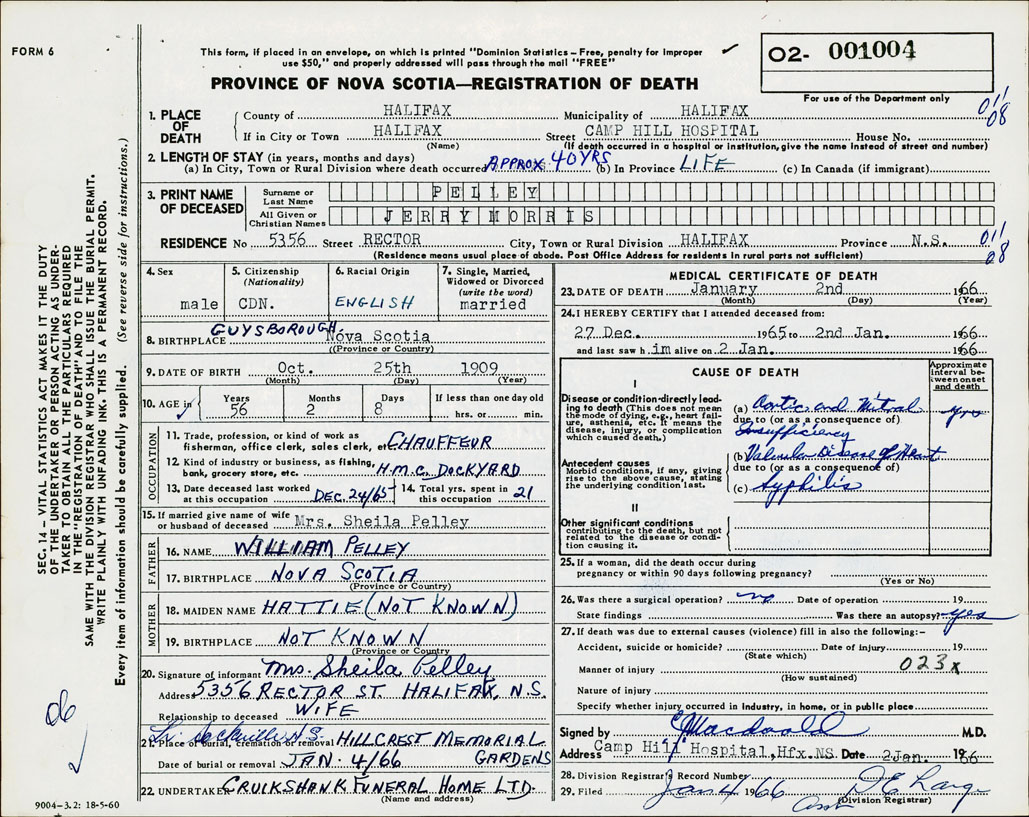 FORM 6
This form, if placed in an envelope, on which is printed "Dominion Statistics – Free, penalty for improper
use $50," and properly addressed will pass through the mail "FREE"
✓
02- 001004
For use of the Department only
PROVINCE OF NOVA SCOTIA—REGISTRATION OF DEATH
011
08
1. PLACE OF DEATH
County of HALIFAX Municipality of HALIFAX
If in City or Town HALIFAX Street CAMP HILL HOSPITAL House No.
(Name) (If death occurred in a hospital or institution, give the name instead of street and number)
2. LENGTH OF STAY (in years, months and days)
(a) In City, Town or Rural Division where death occurred APPROX. 40 YRS (b) In Province LIFE (c) In Canada (if immigrant)
3. PRINT NAME OF DECEASED
Surname or Last Name PELLEY
All Given or Christian Names JERRY MORRIS
011
08
RESIDENCE No 5356 Street RECTOR City, Town or Rural Division HALIFAX Province N.S.
(Residence means usual place of abode. Post Office Address for residents in rural parts not sufficient)
4. Sex male
5. Citizenship (Nationality) CDN.
6. Racial Origin ENGLISH
7. Single, Married, Widowed or Divorced (write the word) married
8. BIRTHPLACE GUYSBOROUGH Nova Scotia
(Province or Country)
9. DATE OF BIRTH Oct. 25th 1909
(Month) (Day) (Year)
10. AGE in ✓ Years 56 Months 2 Days 8 If less than one day old hrs. or min.
OCCUPATION
11. Trade, profession, or kind of work as
fisherman, office clerk, sales clerk, etc. CHAUFFEUR
12. Kind of industry or business, as fishing,
bank, grocery store, etc. H.M.C. DOCKYARD
13. Date deceased last worked at this occupation DEC. 24/65 14. Total yrs. spent in this occupation 21
15. If married give name of wife or husband of deceased Mrs. Sheila Pelley
FATHER
16. NAME WILLIAM PELLEY
17. BIRTHPLACE NOVA SCOTIA
(Province or Country)
MOTHER
18. MAIDEN NAME HATTIE (NOT KNOWN)
19. BIRTHPLACE NOT KNOWN
(Province or Country)
20. Signature of informant Mrs. Sheila Pelley
Address 5356 RECTOR ST. HALIFAX, N.S.
Relationship to deceased WIFE
Sackville N.S.
21. Place of burial, cremation or removal HILLCREST MEMORIAL GARDENS
Date of burial or removal JAN. 4/66
22. UNDERTAKER CRUIKSHANK FUNERAL HOME LTD.
(Name and address)
9004–3.2: 18-5-60
MEDICAL CERTIFICATE OF DEATH
23. DATE OF DEATH January 2nd 1966
(Month) (Day) (Year)
24. I HEREBY CERTIFY that I attended deceased from:
27 Dec. 1965 to 2nd Jan. 1966
and last saw him alive on 2 Jan. 1966
CAUSE OF DEATH
Approximate interval between onset and death
I
Disease or condition directly leading to death (This does not
mean the mode of dying, e.g., heart failure, asthenia, etc. It means the
disease, injury, or complication which caused death.)
(a) Aortic and Mitral yrs
due to (or as a consequence of)
Insufficiency
Antecedent causes
Morbid conditions, if any, giving rise to the above cause, stating the underlying condition last.
(b) Valvular Disease of Heart
due to (or as a consequence of)
(c) Syphilis
II
Other significant conditions
contributing to the death, but not related to the disease or condition causing it.
25. If a woman, did the death occur during
pregnancy or within 90 days following pregnancy?
(Yes or No)
26. Was there a surgical operation? no Date of operation 19
State findings Was there an autopsy? yes
27. If death was due to external causes (violence) fill in also the following:–
Accident, suicide or homicide? Date of injury 19
(State which)
Manner of injury 023x
(How sustained)
Nature of injury
Specify whether injury occurred in industry, in home, or in public place
Signed by Macdonald M.D.
Address Camp Hill Hospital, Hfx. NS. Date 2 Jan. 1966
28. Division Registrar's Record Number
29. Filed Jan 4 1966 D E Large
Asst (Division Registrar)
SEC. 14 – VITAL STATISTICS ACT MAKES IT THE DUTY
OF THE UNDERTAKER OR PERSON ACTING AS UNDER-
TAKER TO OBTAIN ALL THE PARTICULARS REQUIRED
IN THE "REGISTRATION OF DEATH" AND TO FILE THE
SAME WITH THE DIVISION REGISTRAR WHO SHALL ISSUE THE BURIAL PERMIT.
WRITE PLAINLY WITH UNFADING INK. THIS IS A PERMANENT RECORD.
Every item of information should be carefully supplied. (See reverse side for instructions.)
06
✓